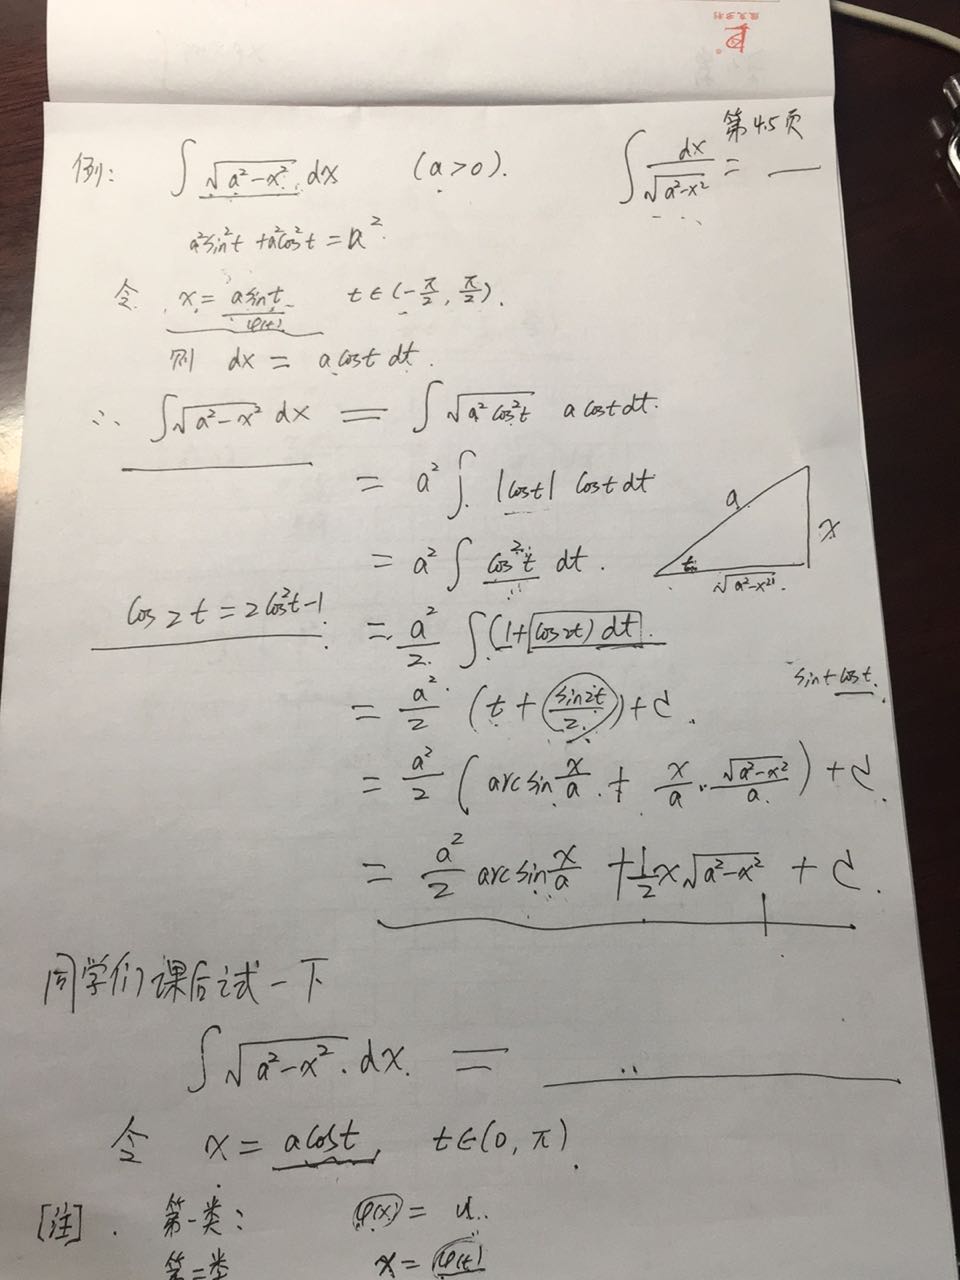 例: ∫√(a²-x²) dx (a>0). ∫dx/√(a²-x²) = ___ 第45页
a²sin²t + a²cos²t = a².
令 x = asint φ(t) t∈(-π/2, π/2).
则 dx = acost dt.
∴ ∫√(a²-x²) dx = ∫√(a²cos²t) acost dt.
= a² ∫ |cost| cost dt
= a² ∫ cos²t dt.
a x t √(a²-x²)
cos2t = 2cos²t-1. = a²/2 ∫(1+cos2t) dt.
= a²/2 (t + sin2t/2) + C. sint cost.
= a²/2 (arcsin x/a + x/a · √(a²-x²)/a) + C.
= a²/2 arcsin x/a + 1/2 x√(a²-x²) + C.
同学们课后试一下
∫√(a²-x²) dx = ___
令 x = acost, t∈(0, π).
[注]. 第一类: φ(x) = u.
第二类 x = φ(t)